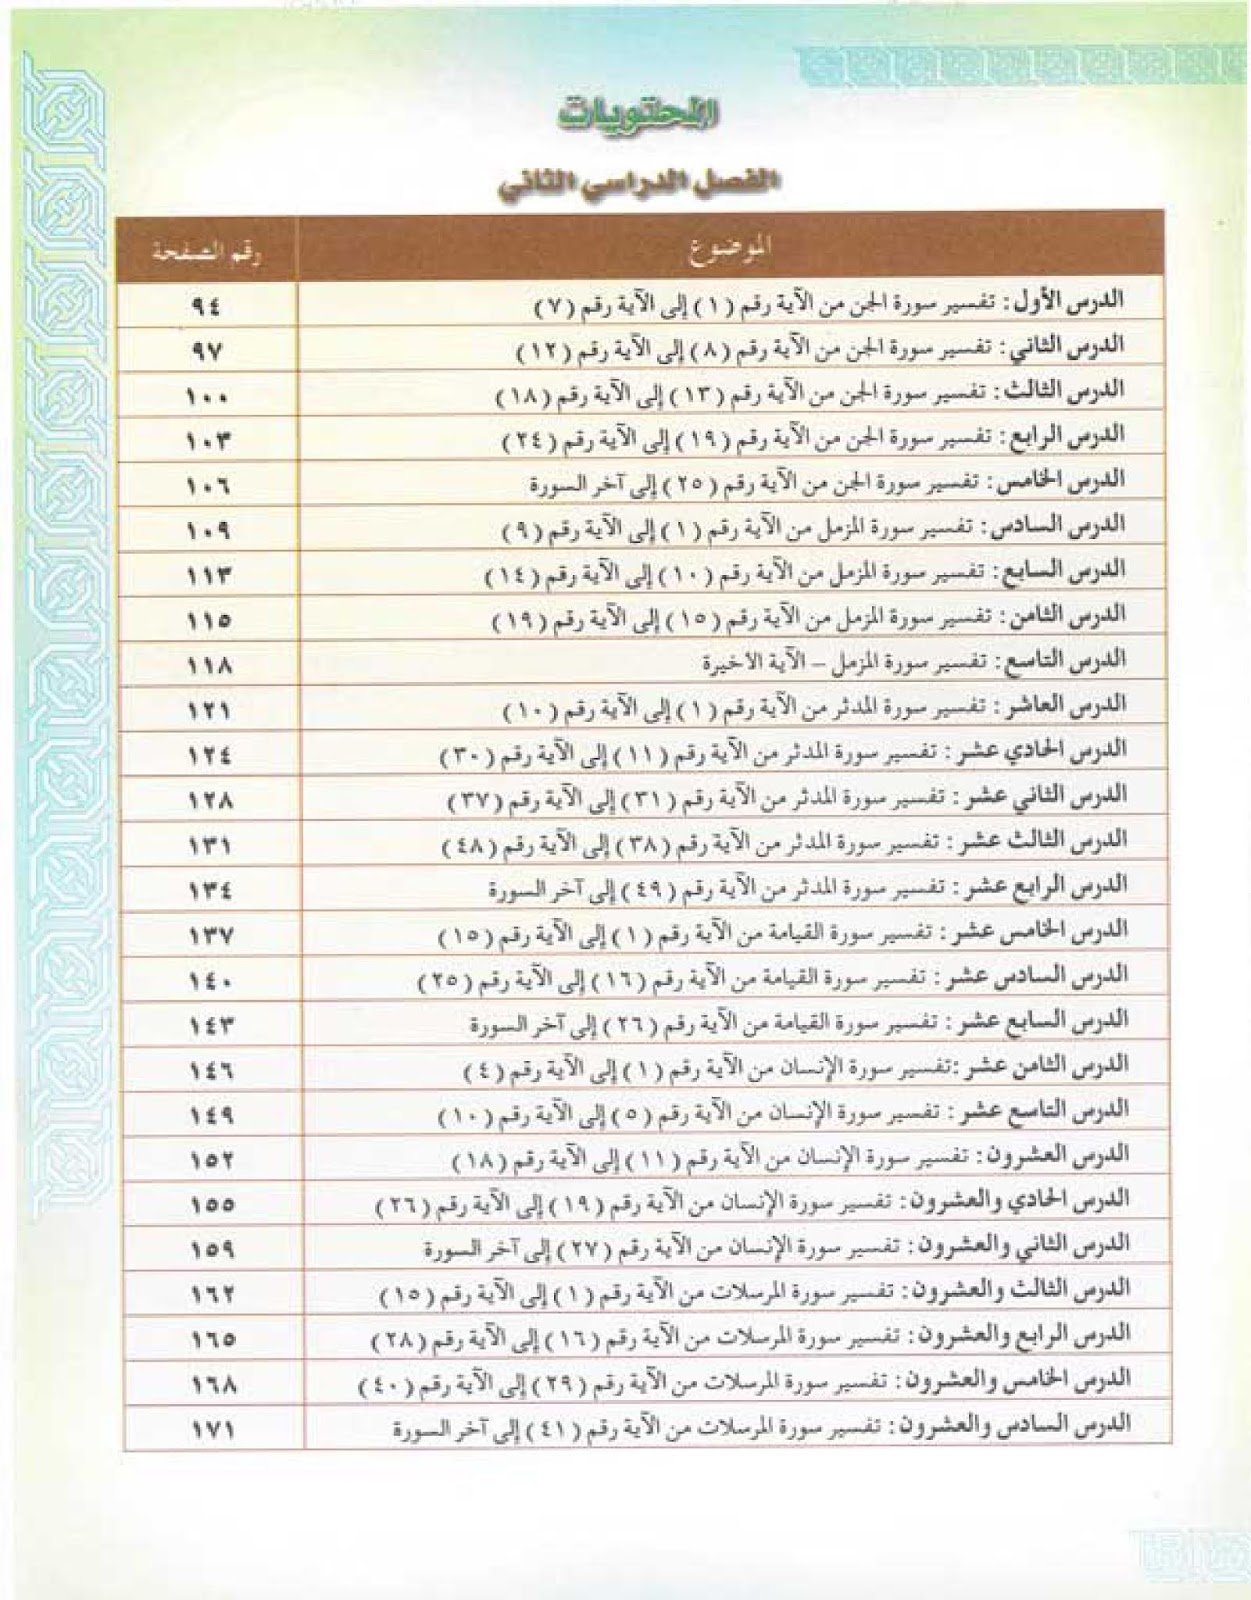 المحتويات
الفصل الدراسي الثاني
الموضوع رقم الصفحة
الدرس الأول: تفسير سورة الجن من الآية رقم (١) إلى الآية رقم (٧) ٩٤
الدرس الثاني: تفسير سورة الجن من الآية رقم (٨) إلى الآية رقم (١٢) ٩٧
الدرس الثالث: تفسير سورة الجن من الآية رقم (١٣) إلى الآية رقم (١٨) ١٠٠
الدرس الرابع: تفسير سورة الجن من الآية رقم (١٩) إلى الآية رقم (٢٤) ١٠٣
الدرس الخامس: تفسير سورة الجن من الآية رقم (٢٥) إلى آخر السورة ١٠٦
الدرس السادس: تفسير سورة المزمل من الآية رقم (١) إلى الآية رقم (٩) ١٠٩
الدرس السابع: تفسير سورة المزمل من الآية رقم (١٠) إلى الآية رقم (١٤) ١١٣
الدرس الثامن: تفسير سورة المزمل من الآية رقم (١٥) إلى الآية رقم (١٩) ١١٥
الدرس التاسع: تفسير سورة المزمل – الآية الاخيرة ١١٨
الدرس العاشر: تفسير سورة المدثر من الآية رقم (١) إلى الآية رقم (١٠) ١٢١
الدرس الحادي عشر: تفسير سورة المدثر من الآية رقم (١١) إلى الآية رقم (٣٠) ١٢٤
الدرس الثاني عشر: تفسير سورة المدثر من الآية رقم (٣١) إلى الآية رقم (٣٧) ١٢٨
الدرس الثالث عشر: تفسير سورة المدثر من الآية رقم (٣٨) إلى الآية رقم (٤٨) ١٣١
الدرس الرابع عشر: تفسير سورة المدثر من الآية رقم (٤٩) إلى آخر السورة ١٣٤
الدرس الخامس عشر: تفسير سورة القيامة من الآية رقم (١) إلى الآية رقم (١٥) ١٣٧
الدرس السادس عشر: تفسير سورة القيامة من الآية رقم (١٦) إلى الآية رقم (٢٥) ١٤٠
الدرس السابع عشر: تفسير سورة القيامة من الآية رقم (٢٦) إلى آخر السورة ١٤٣
الدرس الثامن عشر: تفسير سورة الإنسان من الآية رقم (١) إلى الآية رقم (٤) ١٤٦
الدرس التاسع عشر: تفسير سورة الإنسان من الآية رقم (٥) إلى الآية رقم (١٠) ١٤٩
الدرس العشرون: تفسير سورة الإنسان من الآية رقم (١١) إلى الآية رقم (١٨) ١٥٢
الدرس الحادي والعشرون: تفسير سورة الإنسان من الآية رقم (١٩) إلى الآية رقم (٢٦) ١٥٥
الدرس الثاني والعشرون: تفسير سورة الإنسان من الآية رقم (٢٧) إلى آخر السورة ١٥٩
الدرس الثالث والعشرون: تفسير سورة المرسلات من الآية رقم (١) إلى الآية رقم (١٥) ١٦٢
الدرس الرابع والعشرون: تفسير سورة المرسلات من الآية رقم (١٦) إلى الآية رقم (٢٨) ١٦٥
الدرس الخامس والعشرون: تفسير سورة المرسلات من الآية رقم (٢٩) إلى الآية رقم (٤٠) ١٦٨
الدرس السادس والعشرون: تفسير سورة المرسلات من الآية رقم (٤١) إلى آخر السورة ١٧١